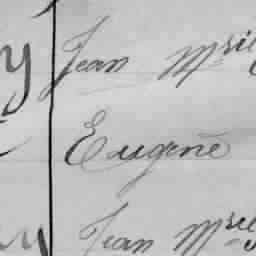 Jean Mrie
Eugène
Jean Mrie